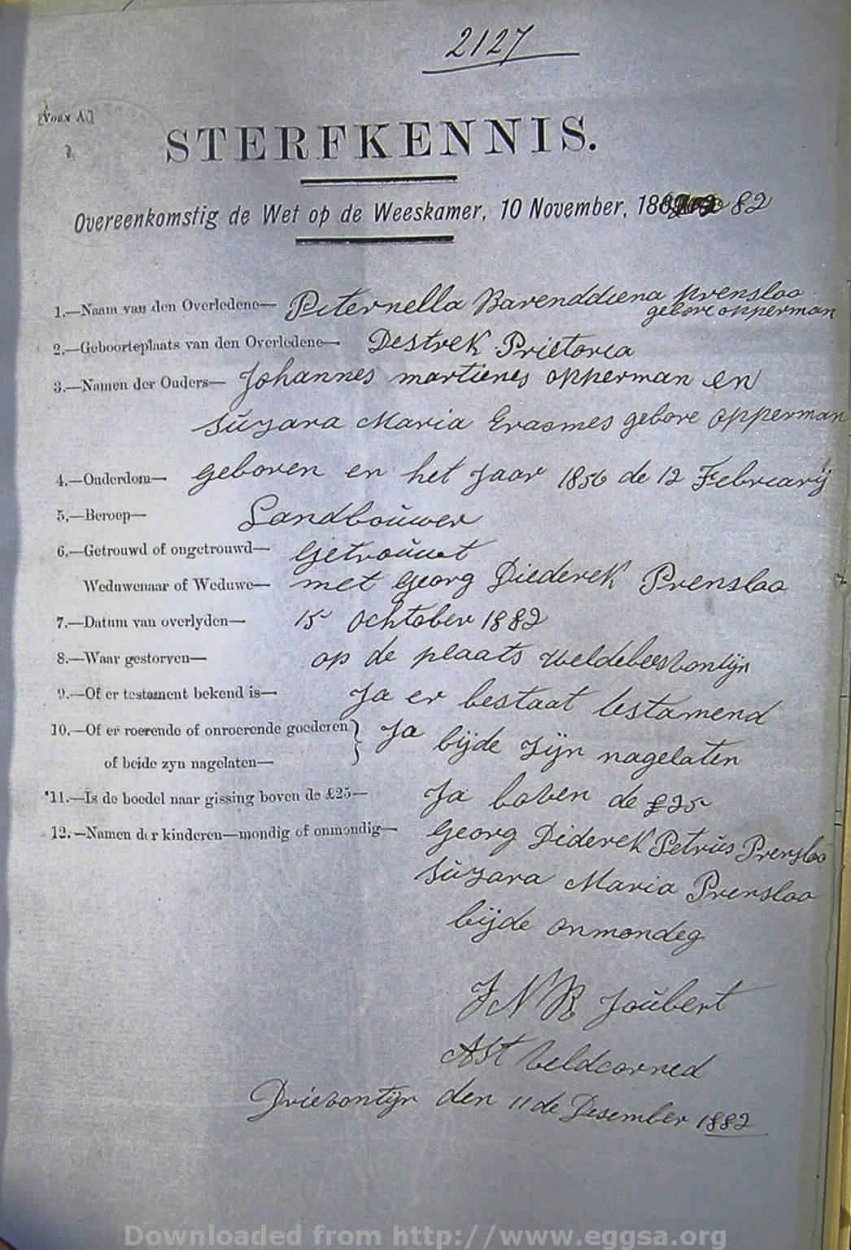 2127
[Form A.]
STERFKENNIS.
Overeenkomstig de Wet op de Weeskamer, 10 November, 18 82
1.—Naam van den Overledene— Peternella Barenddiena Prensloo
gebore opperman
2.—Geboorteplaats van den Overledene— Destrek Prietoria
3.—Namen der Ouders— Johannes martienes opperman en
Suzara Maria Erasmes gebore opperman
4.—Ouderdom— geboren en het jaar 1856 de 12 Februarij
5.—Beroep— Landbouwer
6.—Getrouwd of ongetrouwd— Getrouwt
Weduwenaar of Weduwe— met Georg Diederek Prensloo
7.—Datum van overlyden— 15 Ochtober 1882
8.—Waar gestorven— op de plaats weldebeesvontijn
9.—Of er testament bekend is— Ja er bestaat testamend
10.—Of er roerende of onroerende goederen } Ja bijde zijn nagelaten
of beide zyn nagelaten—
11.—Is de boedel naar gissing boven de £25— Ja boven de £25
12.—Namen der kinderen—mondig of onmondig— Georg Diderek Petrus Prensloo
Suzara Maria Prensloo
bijde onmondeg
J N R Joubert
Ast Veldcorned
Drievontyn den 11 de Desember 1882
Downloaded from http://www.eggsa.org